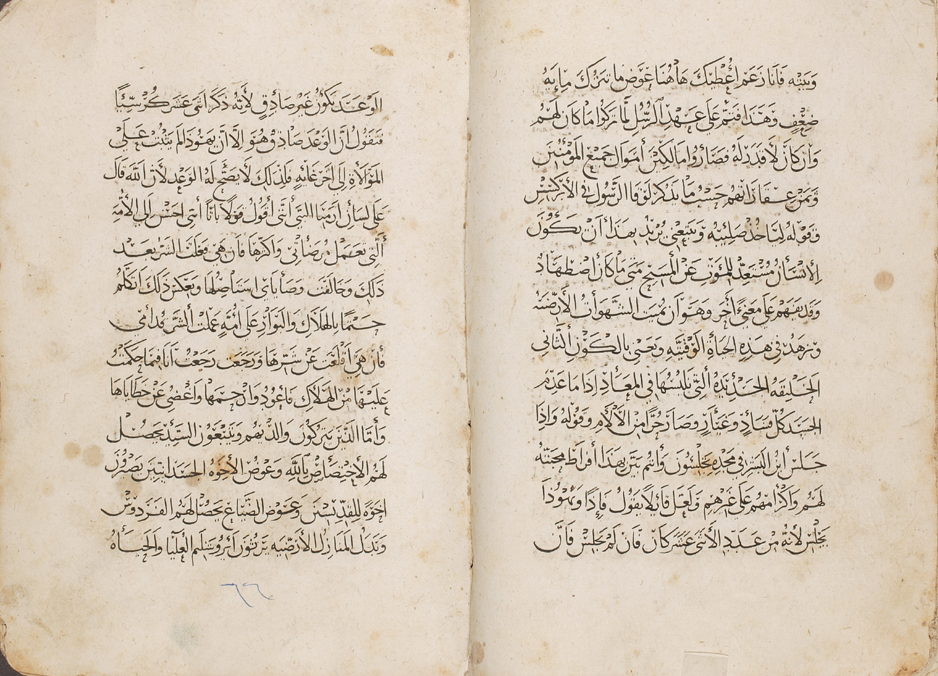 وبيته فانا زعم اعطيك هاهنا عوض ما تترك مايه
ضعف وهذا فتم على عهد الرسل لما تركوا ما كان لهم
وان كان لا قدر له فصاروا مالكين اموال جميع المؤمنين
حسب ما يذكر لوقا الرسول في الابركسيس
وقوله لياخذ صليبه ويتبعني يريد بهذا ان يكون
الانسان مستعد للموت عن المسيح متى ما كان اضطهاد
وقد يفهم على معنى اخر وهو ان يميت الشهوات الارضيه
ويزهد في هذه الحياة الوقتيه ويعني بالكون الثاني
الخليقه الجديده التي يلبسها في المعاد اذا ما عدم
الجسد كل فساد وصار حرا من الالام وقوله واذا
جلس ابن البشر في مجده تجلسون وانتم بين بهذا افراط محبته
لهم واكرامهم على غيرهم ولعل قايلا يقول فاذا ويهوذا
يجلس لانه من عدد الاثني عشر كان فان لم يجلس فان
الوعد يكون غير صادق لانه ذكر اثني عشر كرسيا
فنقول ان الوعد صادق وهو الا ان يهوذا لم يثبت على
الموالاة الى اخر غايه فلذلك لا يصح له الوعد لان الله قال
على لسان ارميا النبي انني اقول قولا باتا انني احسن الى الامة
التي تعمل مرضاتي واكرمها فان هي فعلت الشر بعد
ذلك وخالفت وصاياي استاصلها وبعكس ذلك اتكلم
حتما بالهلاك والبوار على امة عملت الشر قدامي
فان هي اقلعت عن شرها ورجعت رجعت انا فيما حكمت
عليها من الهلاك فاعود وارحمها واغضي عن خطاياها
واما الذين يتركون والديهم ويتبعون السيد يحصل
لهم الاختصاص بالله وعوض الاخوة الجسدانيين يصيرون
اخوة للقديسين وعوض الضياع يحصل لهم الفردوس
وبدل المنازل الارضيه يرثون اورشليم العليا والحياه
٦٦